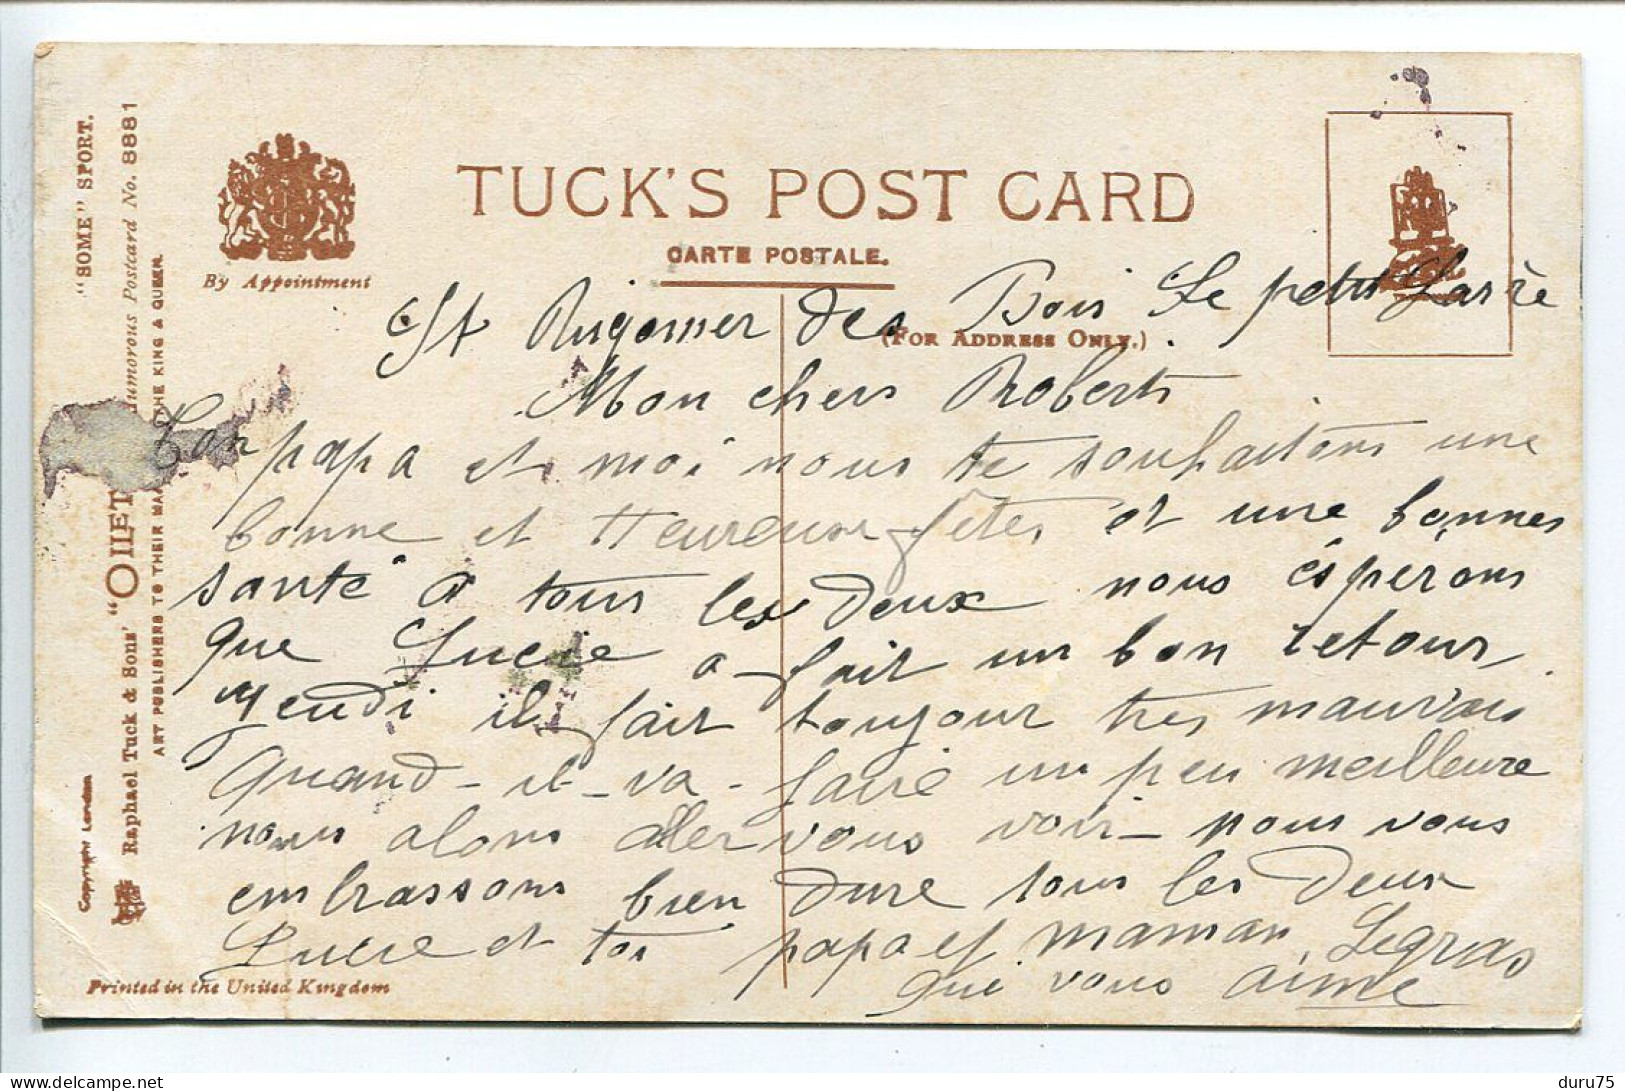 TUCK'S POST CARD
CARTE POSTALE.
By Appointment
(FOR ADDRESS ONLY.)
St Rigomer des Bois Le petit Larrè
Mon chers Roberts
Ton papa et moi nous te souhaitons une
bonne et Heureuse fêtes et une bonnes
santé a tous les deux nous éspérons
que Lucie a fait un bon retour
il fait toujour tres mauvais
Quand - il - va - faire un peu meilleure
nous alons aller vous voir - nous vous
embrassons bien dure tous les deux
Lucie et toi papa et maman Legras
qui vous aime
Printed in the United Kingdom
"SOME" SPORT.
Humorous Postcard No. 8881
Raphael Tuck & Sons' "OILET
ART PUBLISHERS TO THEIR MA THE KING & QUEEN.
Copyright London
delcampe.net
duru75